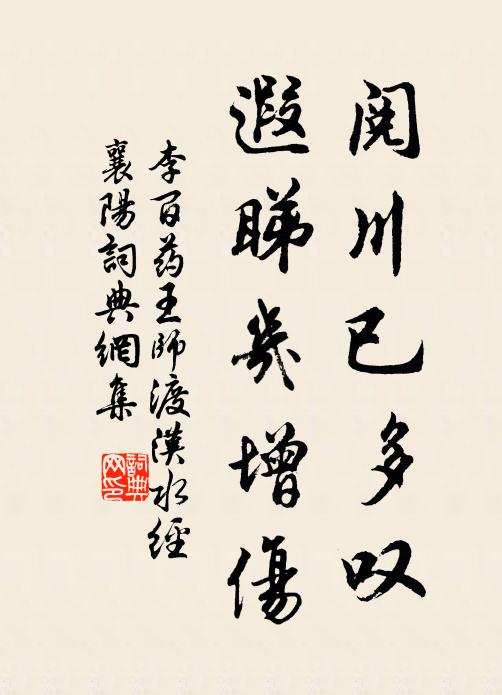 阅川已多叹
遐睇几增傷
李百药王師渡漢水經
襄陽詞典網集
詞典
网印